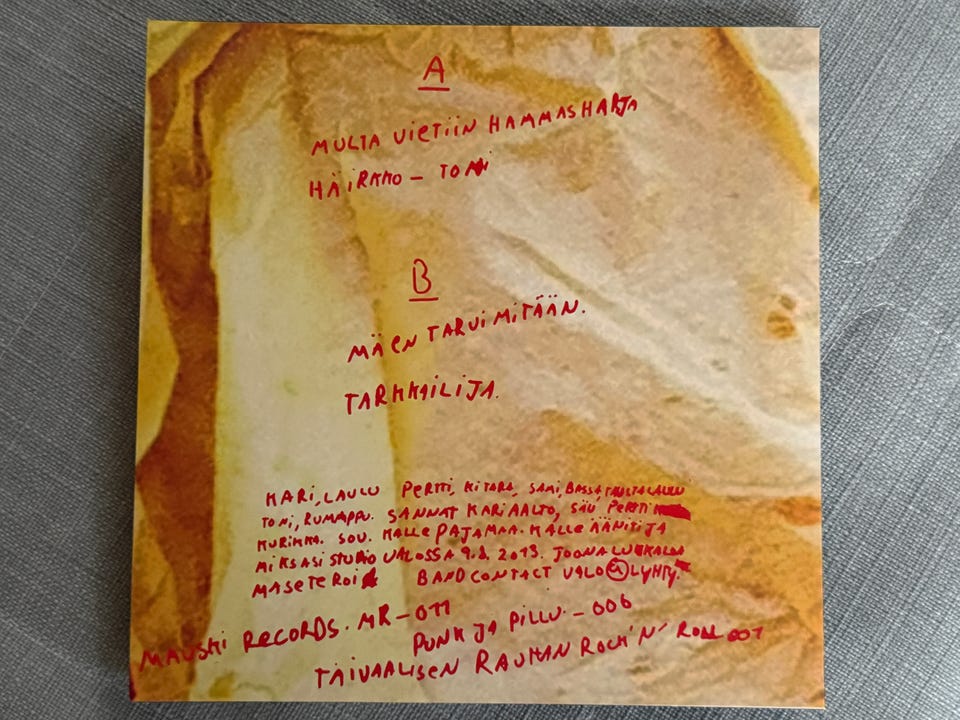 A
MULTA VIETIIN HAMMASHARJA
HÄIRKKO - TONI
B
MÄ EN TARVI MITÄÄN.
TARKKAILIJA.
KARI, LAULU PERTTI, KITARA, SAMI, BASSA, TAUSTALAULU
TONI, RUMAPPU. SANNAT KARI AALTO, SÄV PERTTI
KURIKKA. SOV. KALLE PAJAMAA. KALLE ÄÄNITI JA
MIKSASI STUDIO VALOSSA 9.8. 2013. JOONA LUKKALA
MASETEROI BAND CONTACT VALO@LYHTY.
MAUSKI RECORDS. MR-011
PUNK JA PILLU. - 006
TAIVAALISEN RAUHAN ROCK'N' ROLL 007